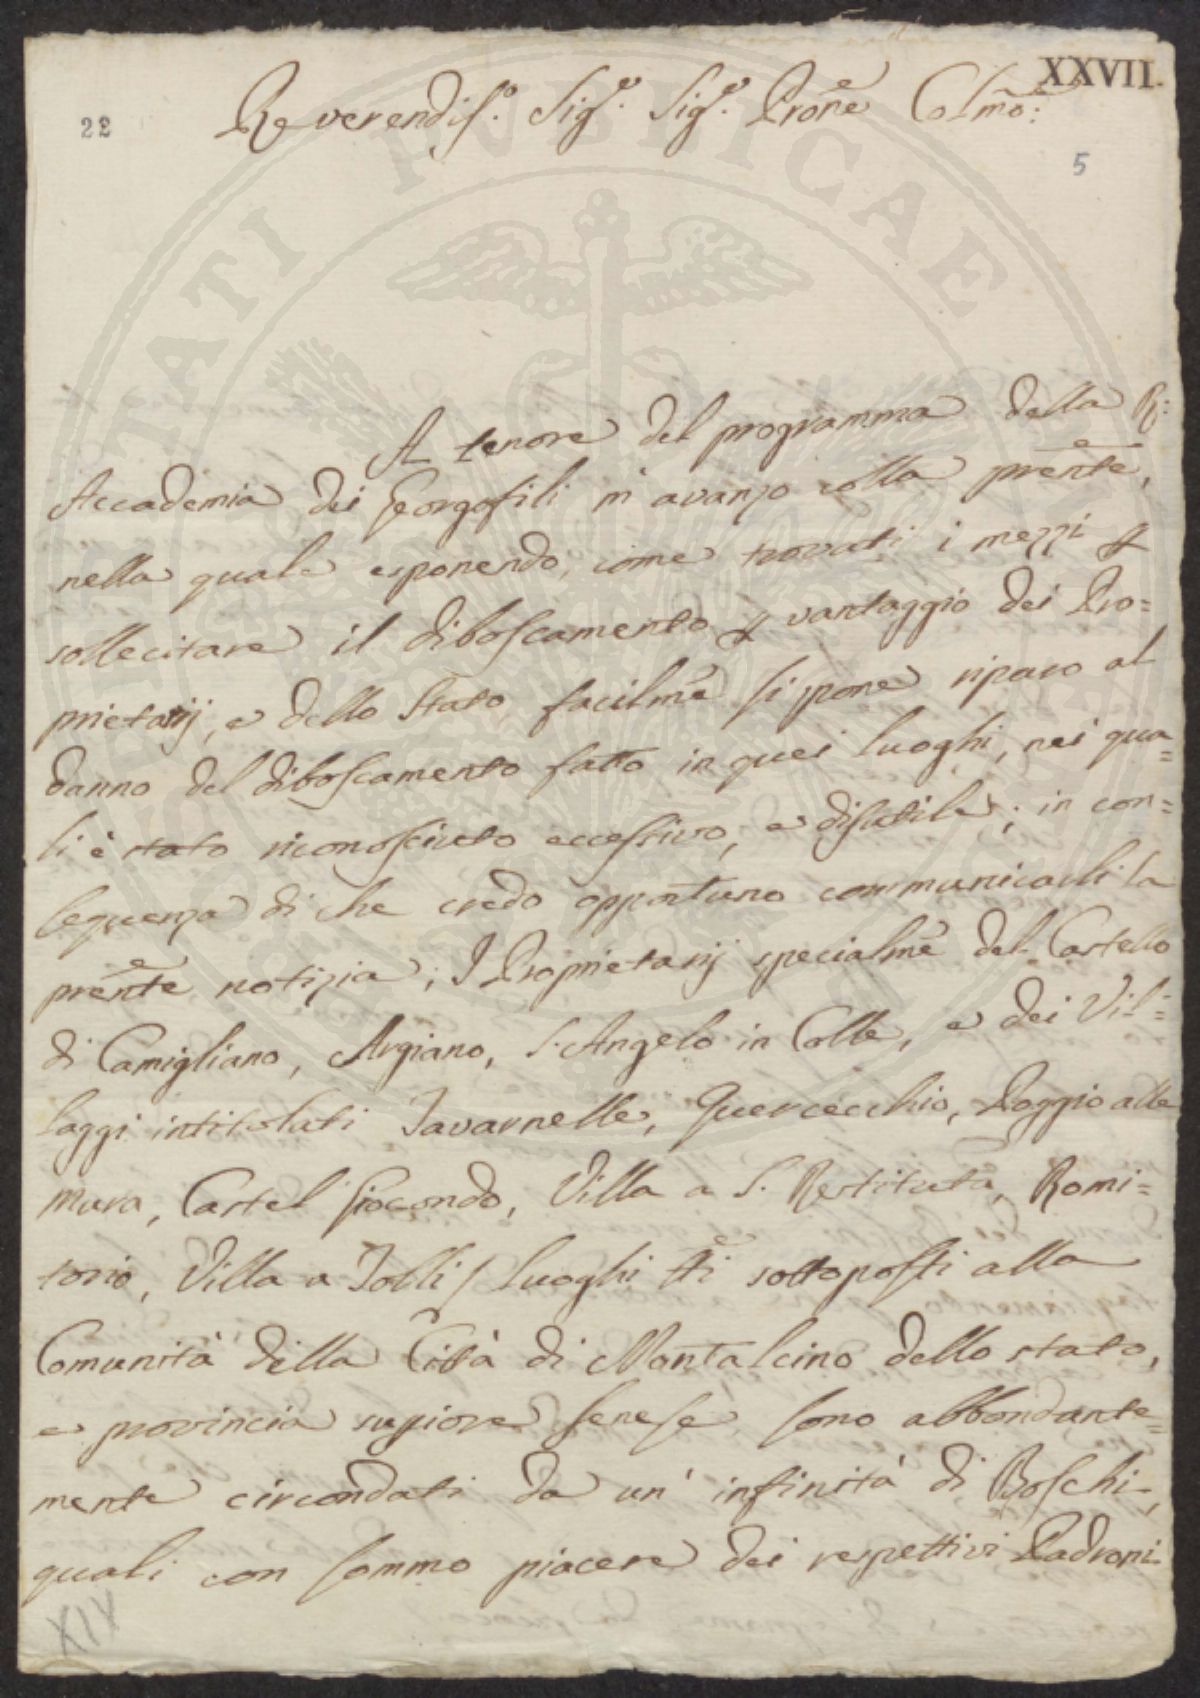 XXVII.
22
Reverendis.º Sig.r Sig.r Prone Colmo:
5
A tenore del programma della R:
Accademia dei Georgofili m'avanzo colla prente,
nella quale esponendo, come trovati i mezzi p
sollecitare il diboscamento p vantaggio dei Pro=
prietarij, e dello Stato facilme si pone riparo al
danno del diboscamento fatto in quei luoghi, nei qua=
li è stato riconosciuto eccessivo, e disutile; in con=
seguenza di che credo opportuno communicarli la
prente notizia; I Proprietarij specialme del Castello
di Camigliano, Argiano, S. Angelo in Colle, e dei Vil=
laggi intitolati Tavarnelle, Quercecchio, Poggio alle
Mura, Castel Giocondo, Villa a S. Restituta, Romi=
torio, Villa a Tolli / luoghi tti sottoposti alla
Comunità della Città di Montalcino dello stato,
e provincia supiore senese, sono abbondante=
mente circondati da un' infinità di Boschi,
quali con sommo piacere dei respettivi Padroni
XIX
SOCIETATI PUBLICAE